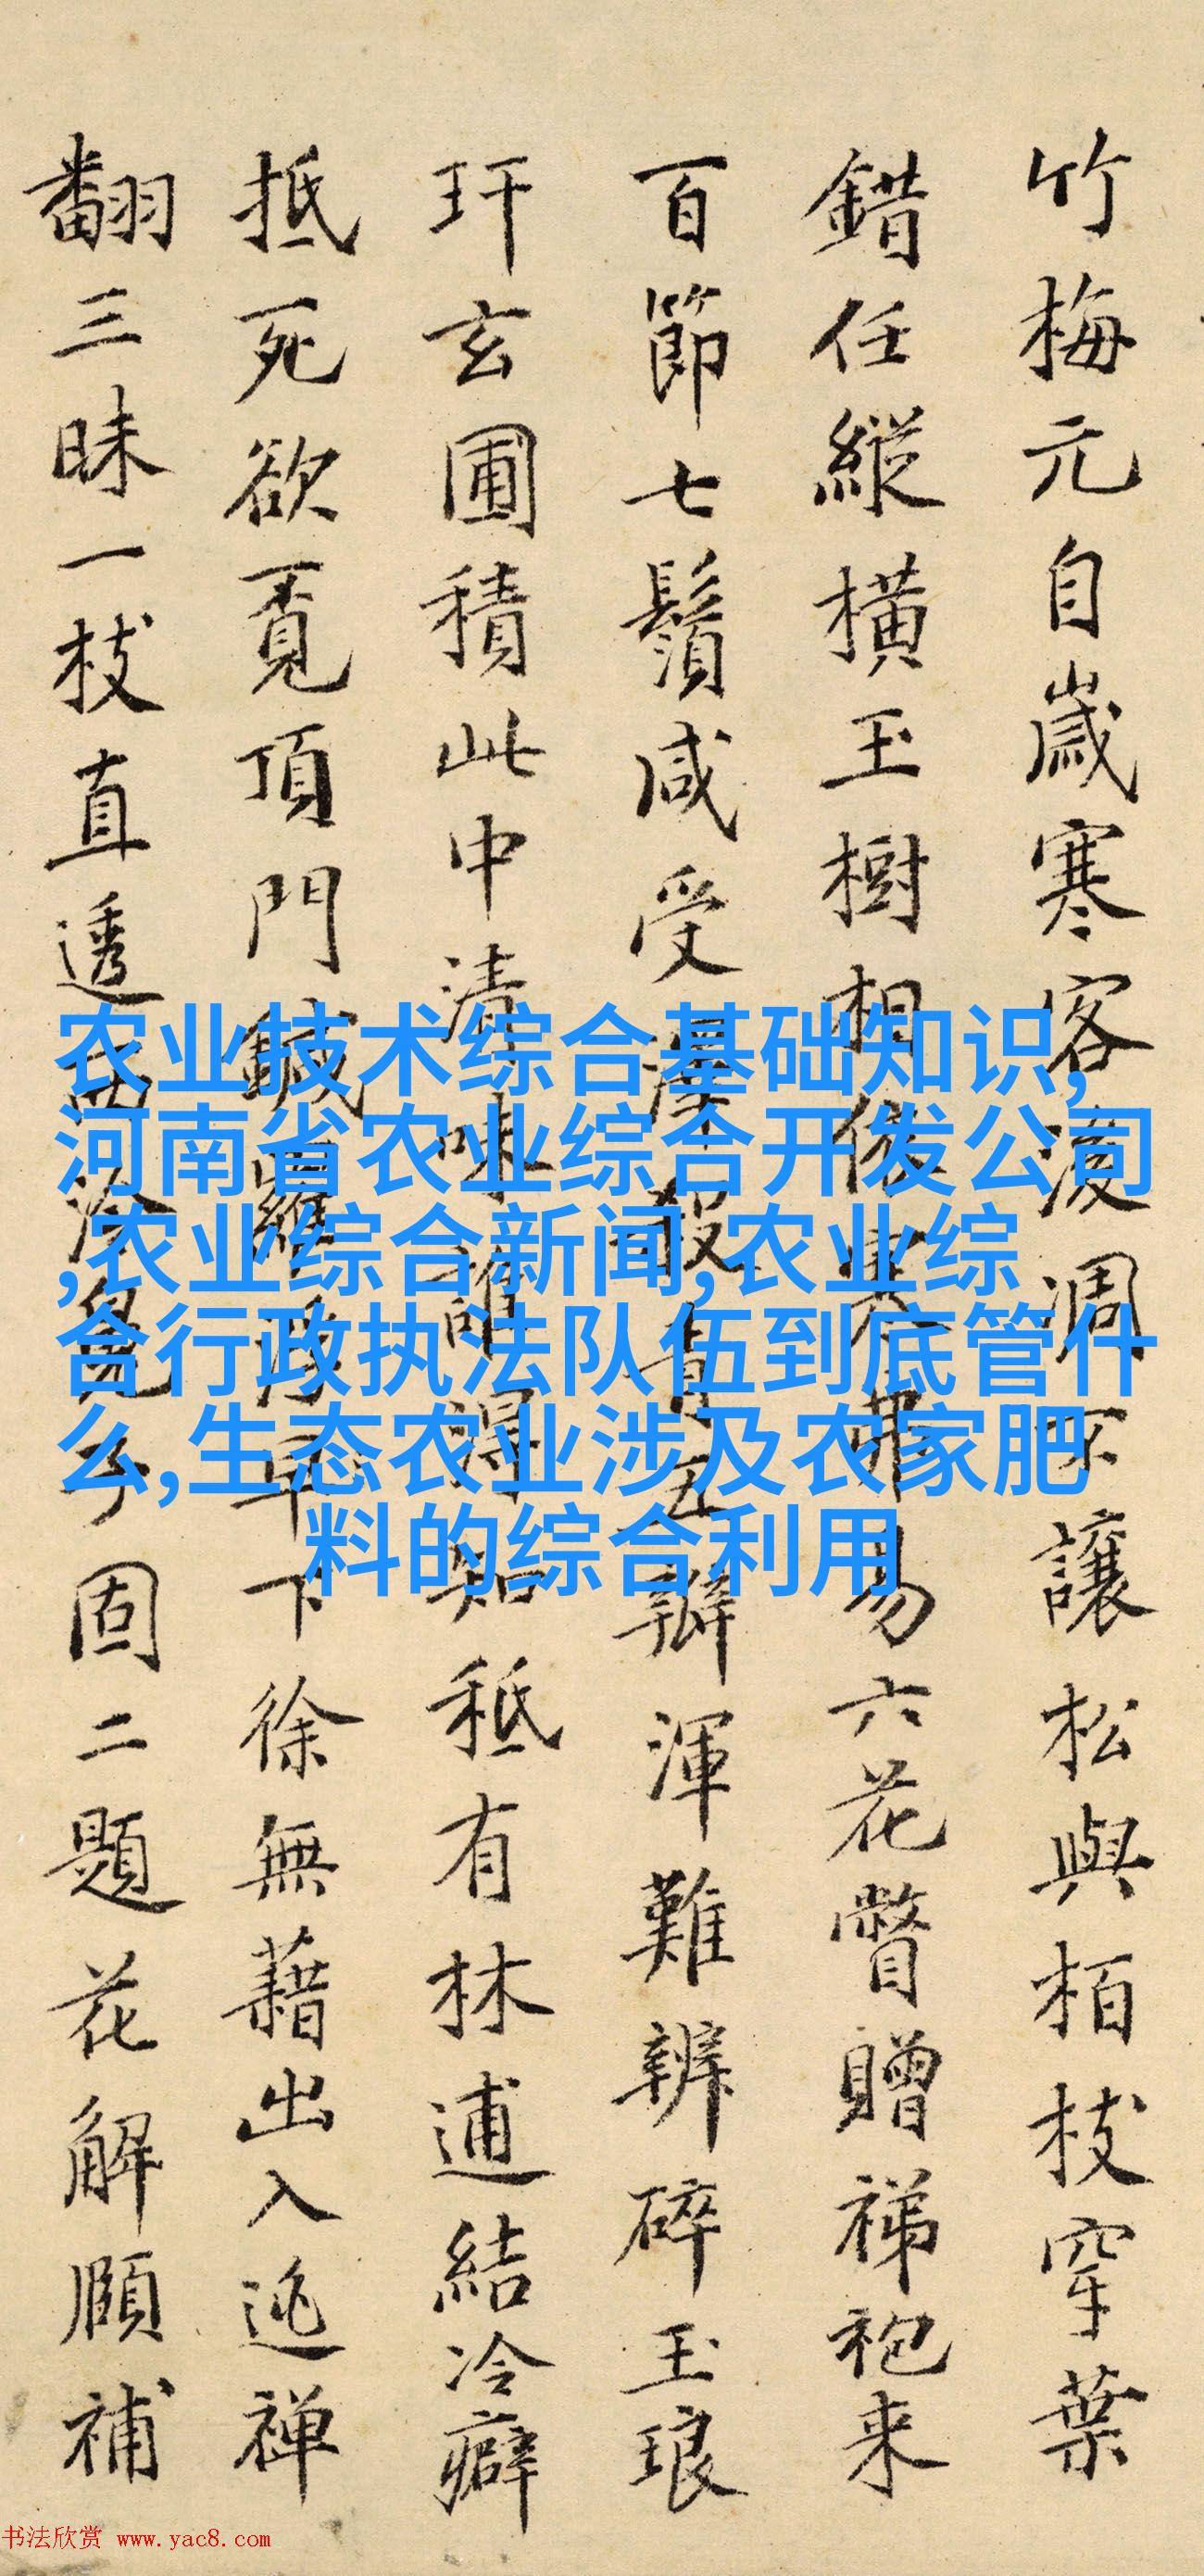 竹梅元自歲寒客凌凋不讓松與栢枝穿葉
錯任縱橫玉樹相易六花瞥贈袍来
百節七鬚咸受五瓣渾難辨碎玉琅
玕玄圃積此中清味誰得知秪有林逋結冷癖
抵死欲覓頂門鍼羅浮早下徐無藉出入逃禅
翻三昧一枝直透固二題花解頤補
农业技术综合基础知识,
河南省农业综合开发公司
,农业综合新闻,农业综
合行政执法队伍到底管什
么,生态农业涉及农家肥
料的综合利用
书法欣赏 www.yac8.com